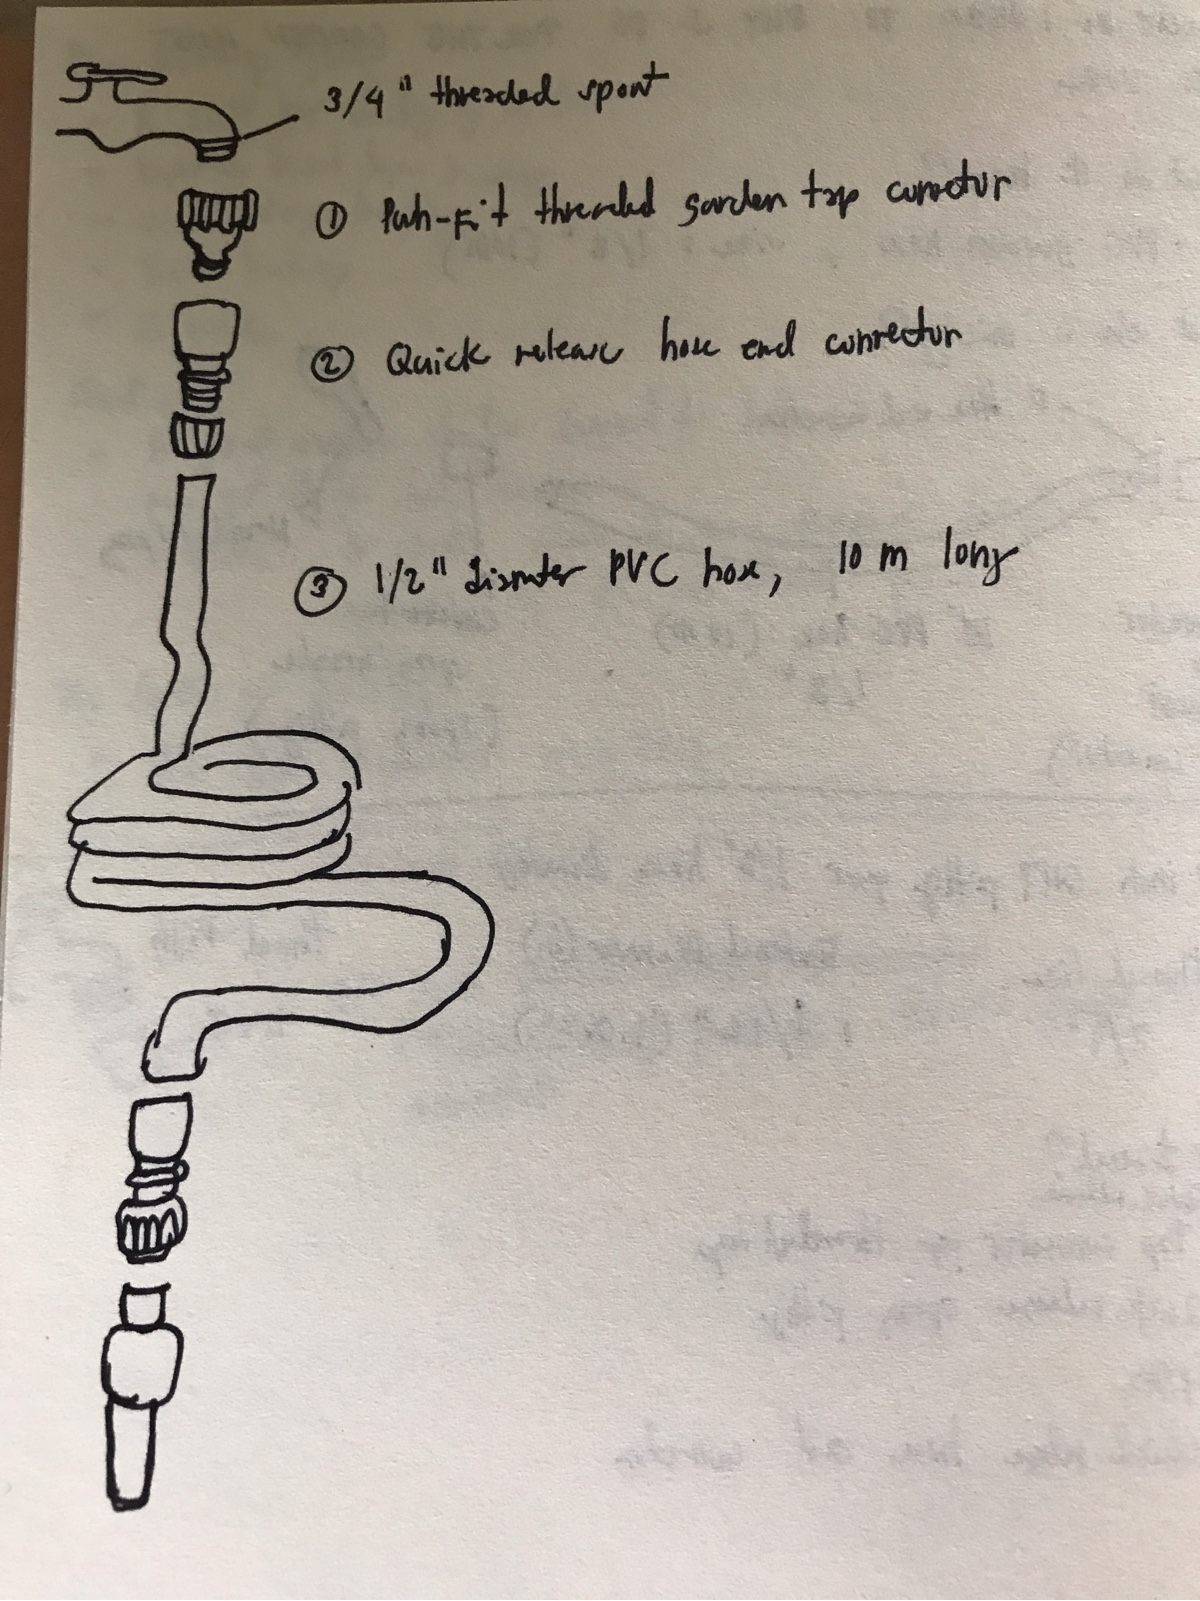 3/4" threaded spout
① Push-Fit threaded garden tap connector
② Quick release hose end connector
③ 1/2" diameter PVC hose, 10 m long